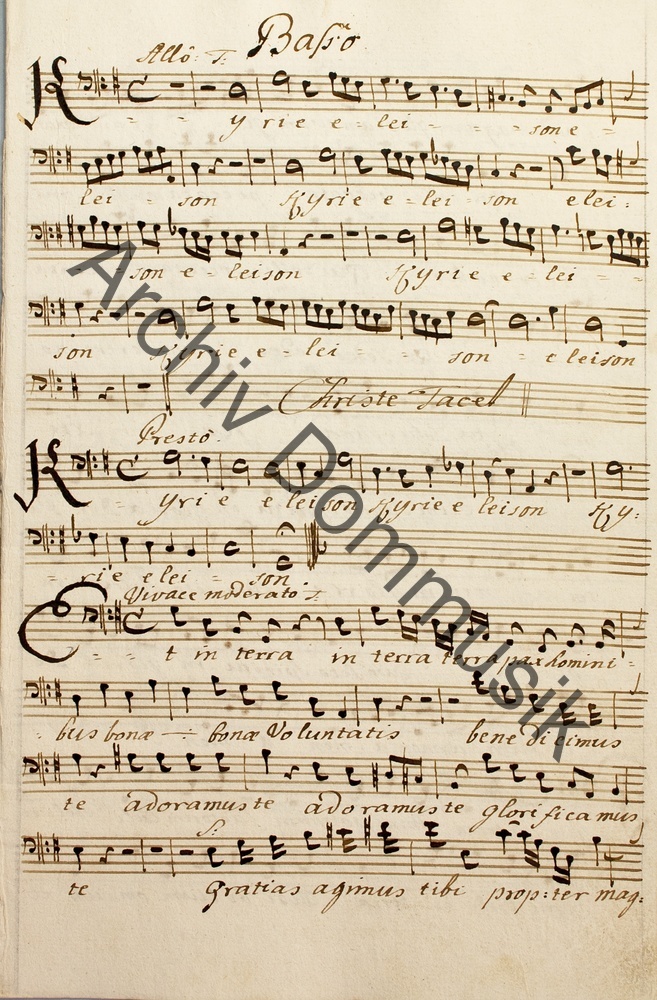 Basso
Allo: T:
Kyrie e - lei - - - son e -
lei - son Kyrie e - lei - son elei:
- - son e - leison Kyrie e - lei - -
son Kyrie e - lei - - - son - e leison
Christe Tacet
Presto
Kyrie e leison Kyrie e leison Ky:
rie elei - son
Vivace moderato T:
Et in terra in terra terra pax homini -
bus bonæ - bonæ Voluntatis bene dicimus
te adoramus te adoramus te glorificamus
S:
te Gratias agimus tibi prop:ter mag:
Archiv Dommusik